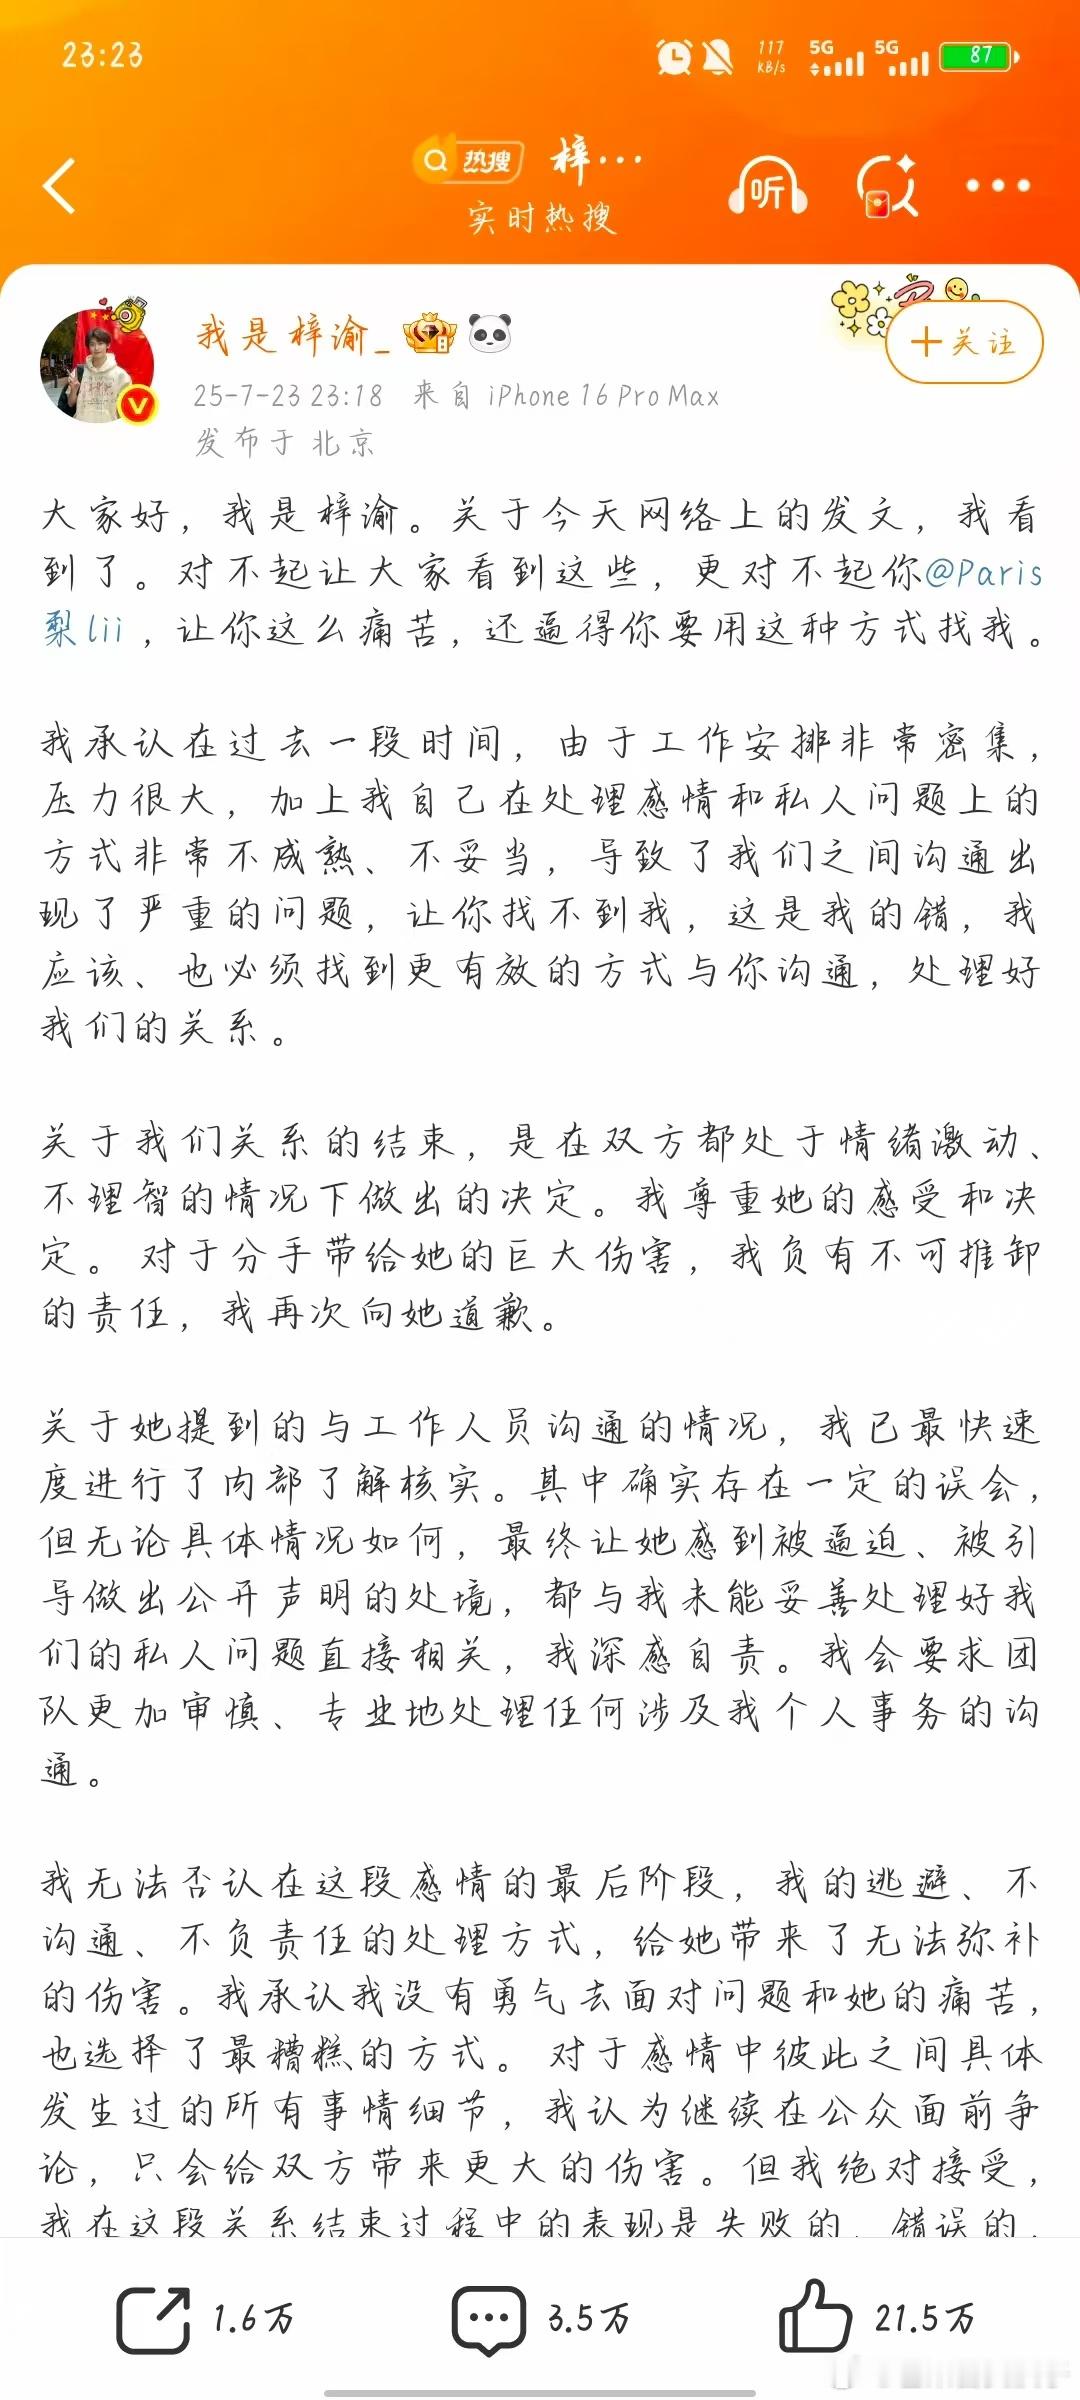 23:23
117 KB/s 5G 5G 87
热搜 梓···
听
实时热搜
我是梓渝_
+关注
25-7-23 23:18 来自 iPhone 16 Pro Max
发布于 北京
大家好，我是梓渝。关于今天网络上的发文，我看
到了。对不起让大家看到这些，更对不起你@Paris
梨lii ，让你这么痛苦，还逼得你要用这种方式找我。
我承认在过去一段时间，由于工作安排非常密集，
压力很大，加上我自己在处理感情和私人问题上的
方式非常不成熟、不妥当，导致了我们之间沟通出
现了严重的问题，让你找不到我，这是我的错，我
应该、也必须找到更有效的方式与你沟通，处理好
我们的关系。
关于我们关系的结束，是在双方都处于情绪激动、
不理智的情况下做出的决定。我尊重她的感受和决
定。 对于分手带给她的巨大伤害，我负有不可推卸
的责任，我再次向她道歉。
关于她提到的与工作人员沟通的情况，我已最快速
度进行了内部了解核实。其中确实存在一定的误会，
但无论具体情况如何，最终让她感到被逼迫、被引
导做出公开声明的处境，都与我未能妥善处理好我
们的私人问题直接相关，我深感自责。我会要求团
队更加审慎、专业地处理任何涉及我个人事务的沟
通。
我无法否认在这段感情的最后阶段，我的逃避、不
沟通、不负责任的处理方式，给她带来了无法弥补
的伤害。我承认我没有勇气去面对问题和她的痛苦，
也选择了最糟糕的方式。 对于感情中彼此之间具体
发生过的所有事情细节，我认为继续在公众面前争
论，只会给双方带来更大的伤害。但我绝对接受，
我在这段关系结束过程中的表现是失败的、错误的，
1.6万
3.5万
21.5万